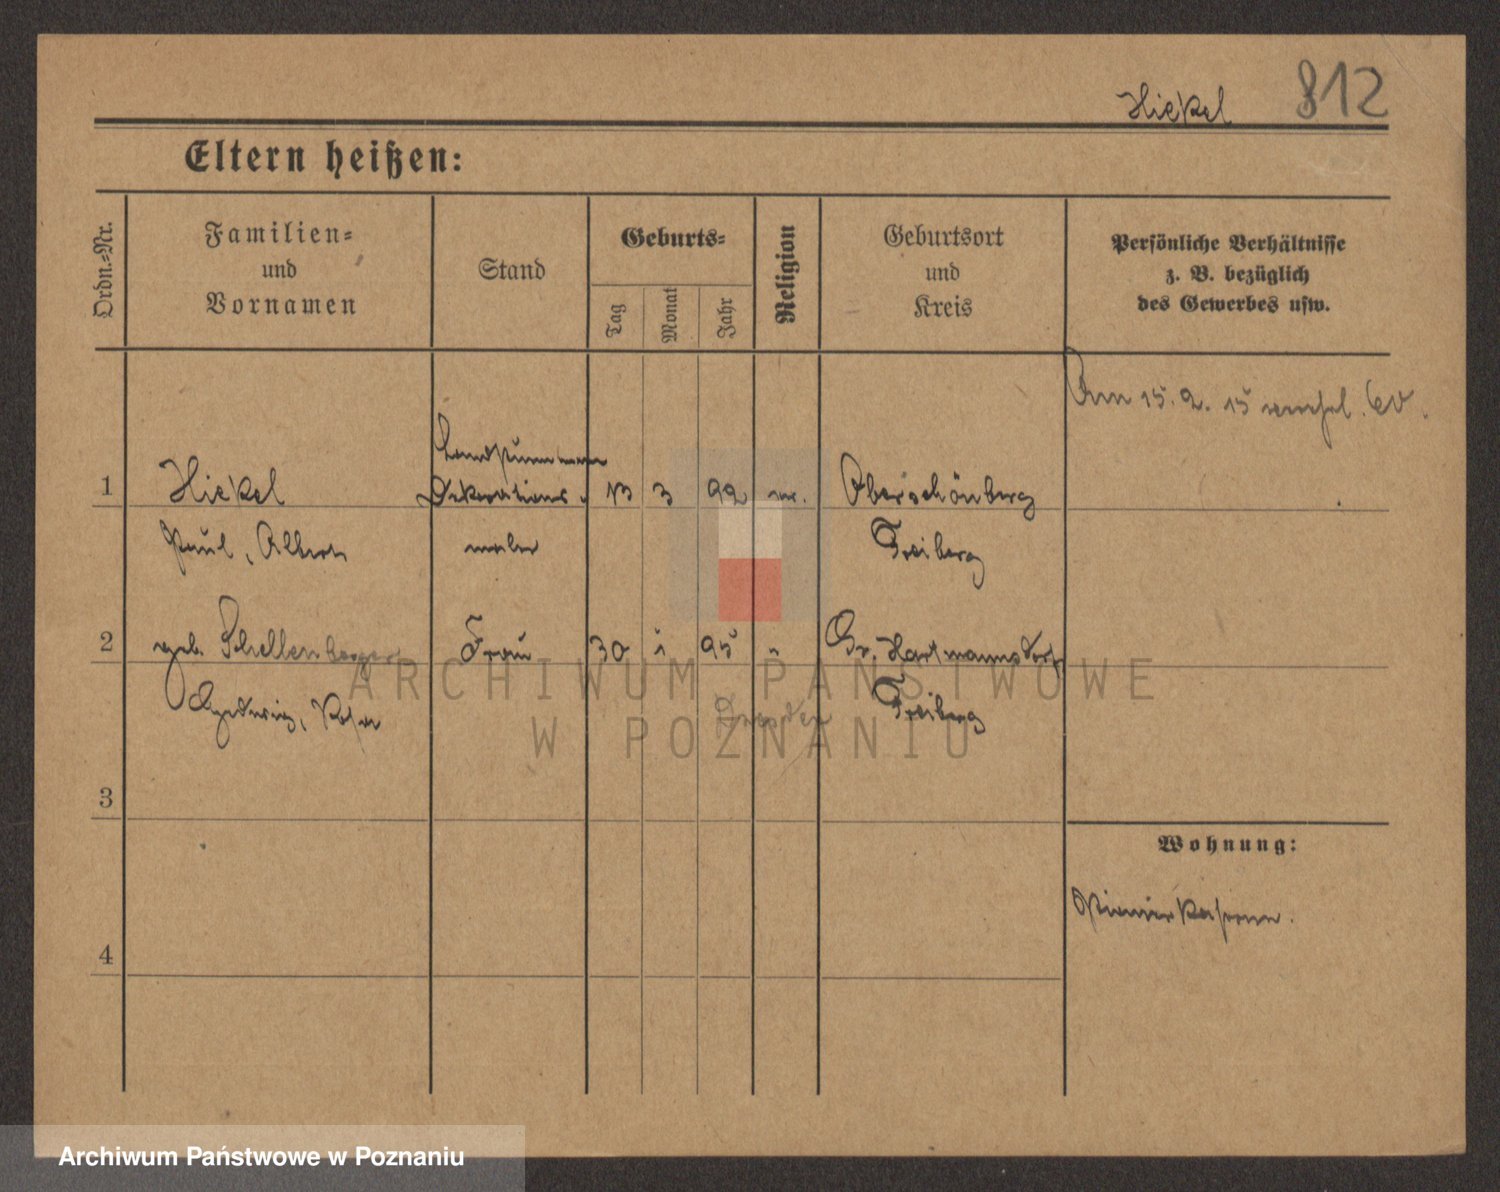 Hickel 812
Eltern heißen:
Ordn.-Nr.
Familien-
und
Vornamen
Stand
Geburts-
Tag
Monat
Jahr
Religion
Geburtsort
und
Kreis
Persönliche Verhältnisse
z. B. bezüglich
des Gewerbes usw.
Am 15. 2. 15
Landsturmmann
1 Hickel Dekorations- 13 3 92 ev. Oberschönberg
Paul, Albert maler Freiberg
2 geb. Schellenberger Frau 30 1 95 " Gr. Hartmannsdorf
Hedwig, Rosa Dresden Freiberg
3
Wohnung:
Pionierkaserne.
4
ARCHIWUM PAŃSTWOWE
W POZNANIU
Archiwum Państwowe w Poznaniu